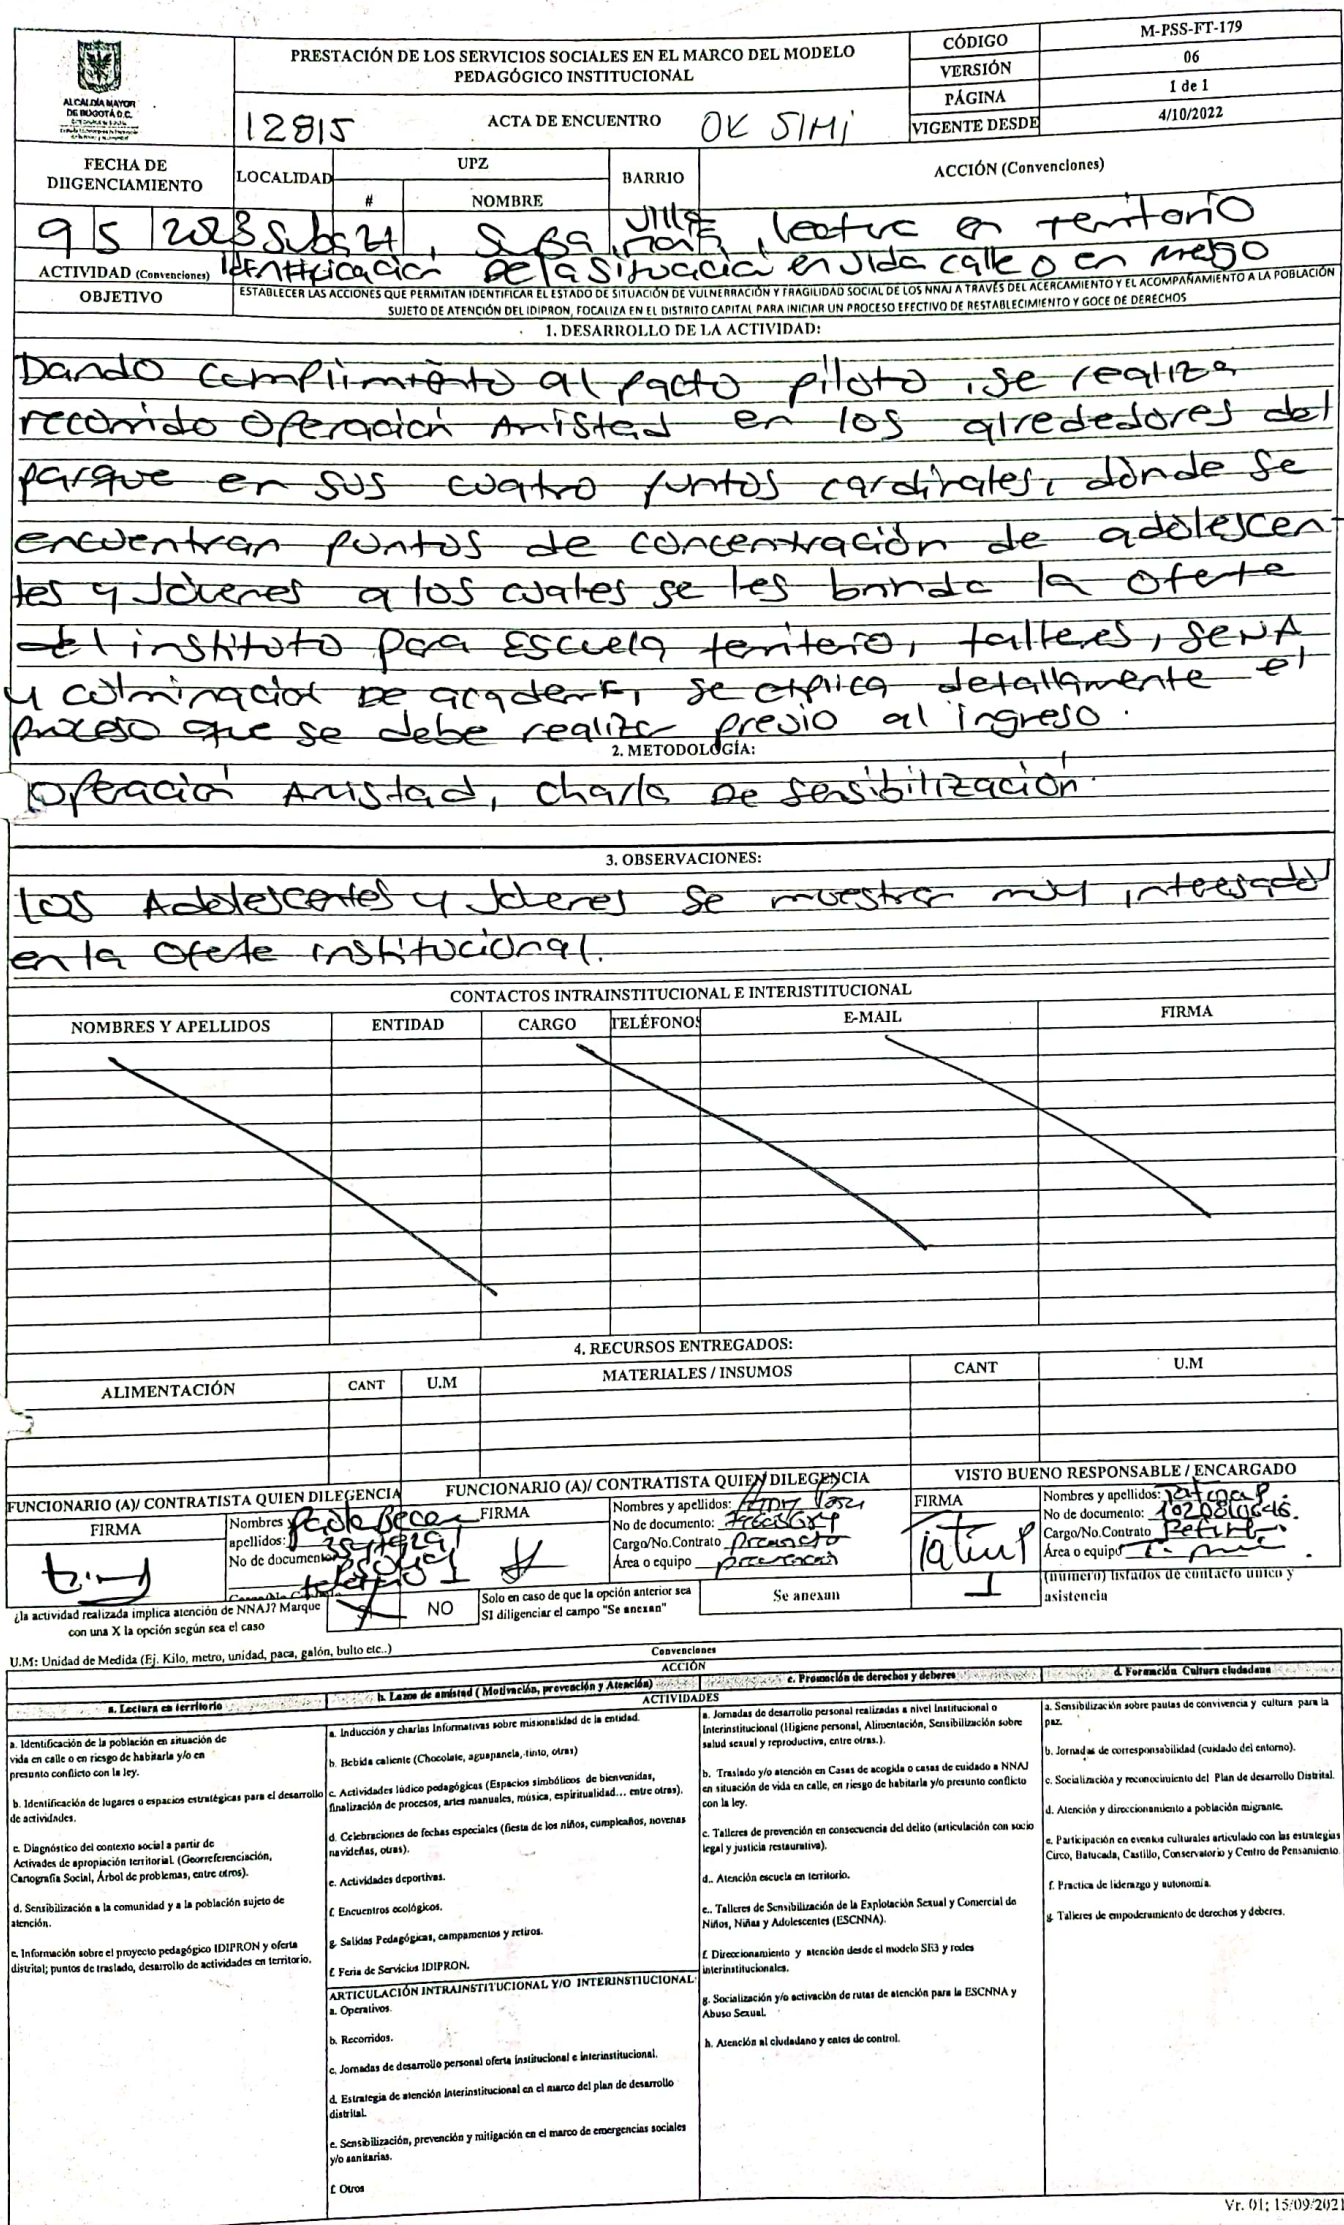 ALCALDÍA MAYOR
DE BOGOTÁ D.C.
PRESTACIÓN DE LOS SERVICIOS SOCIALES EN EL MARCO DEL MODELO
PEDAGÓGICO INSTITUCIONAL
CÓDIGO M-PSS-FT-179
VERSIÓN 06
PÁGINA 1 de 1
VIGENTE DESDE 4/10/2022
12815 ACTA DE ENCUENTRO OK SIMi
FECHA DE
DIIGENCIAMIENTO
LOCALIDAD
UPZ
# NOMBRE
BARRIO
ACCIÓN (Convenciones)
9 5 2023 Suba Suba lectura en territorio
ACTIVIDAD (Convenciones) Identificación De la Situación en vida calle o en riesgo
OBJETIVO
ESTABLECER LAS ACCIONES QUE PERMITAN IDENTIFICAR EL ESTADO DE SITUACIÓN DE VULNERRACIÓN Y FRAGILIDAD SOCIAL DE LOS NNAJ A TRAVÉS DEL ACERCAMIENTO Y EL ACOMPAÑAMIENTO A LA POBLACIÓN
SUJETO DE ATENCIÓN DEL IDIPRON, FOCALIZA EN EL DISTRITO CAPITAL PARA INICIAR UN PROCESO EFECTIVO DE RESTABLECIMIENTO Y GOCE DE DERECHOS
1. DESARROLLO DE LA ACTIVIDAD:
Dando cumplimiento al pacto piloto, se realiza
recorrido Operación Amistad en los alrededores del
parque en sus cuatro puntos cardinales, dónde se
encuentran puntos de concentración de adolescen-
tes y Jóvenes a los cuales se les brinda la oferta
del instituto para Escuela territorio, talleres, SENA
y culminación De academia, se explica detallamente el
proceso que se debe realizar previo al ingreso.
2. METODOLOGÍA:
Operación Amistad, charla De sensibilización.
3. OBSERVACIONES:
Los Adolescentes y Jóvenes se muestran muy interesados
en la oferta institucional.
CONTACTOS INTRAINSTITUCIONAL E INTERISTITUCIONAL
NOMBRES Y APELLIDOS ENTIDAD CARGO TELÉFONOS E-MAIL FIRMA
4. RECURSOS ENTREGADOS:
ALIMENTACIÓN CANT U.M MATERIALES / INSUMOS CANT U.M
FUNCIONARIO (A)/ CONTRATISTA QUIEN DILEGENCIA
FIRMA
Nombres y
apellidos:
No de documento
FUNCIONARIO (A)/ CONTRATISTA QUIEN DILEGENCIA
FIRMA
Nombres y apellidos:
No de documento:
Cargo/No.Contrato
Área o equipo
VISTO BUENO RESPONSABLE / ENCARGADO
FIRMA
Nombres y apellidos: Tatiana P.
No de documento:
Cargo/No.Contrato
Área o equipo
¿la actividad realizada implica atención de NNAJ? Marque
con una X la opción según sea el caso
X NO
Solo en caso de que la opción anterior sea
SI diligenciar el campo "Se anexan"
Se anexan
1
(número) listados de contacto único y
asistencia
U.M: Unidad de Medida (Ej. Kilo, metro, unidad, paca, galón, bulto etc..)
Convenciones
ACCIÓN
a. Lectura en territorio
b. Lazos de amistad ( Motivación, prevención y Atención)
c. Promoción de derechos y deberes
d. Formación Cultura ciudadana
ACTIVIDADES
a. Identificación de la población en situación de
vida en calle o en riesgo de habitarla y/o en
presunto conflicto con la ley.
b. Identificación de lugares o espacios estratégicas para el desarrollo
de actividades.
c. Diagnóstico del contexto social a partir de
Activades de apropiación territorial. (Georreferenciación,
Cartografía Social, Árbol de problemas, entre otros).
d. Sensibilización a la comunidad y a la población sujeto de
atención.
e. Información sobre el proyecto pedagógico IDIPRON y oferta
distrital; puntos de traslado, desarrollo de actividades en territorio.
a. Inducción y charlas Informativas sobre misionalidad de la entidad.
b. Bebida caliente (Chocolate, aguapanela, tinto, otras)
c. Actividades lúdico pedagógicas (Espacios simbólicos de bienvenidas,
finalización de procesos, artes manuales, música, espiritualidad... entre otras).
d. Celebraciones de fechas especiales (fiesta de los niños, cumpleaños, novenas
navideñas, otras).
e. Actividades deportivas.
f. Encuentros ecológicos.
g. Salidas Pedagógicas, campamentos y retiros.
f. Feria de Servicios IDIPRON.
ARTICULACIÓN INTRAINSTITUCIONAL Y/O INTERINSTIUCIONAL
a. Operativos.
b. Recorridos.
c. Jornadas de desarrollo personal oferta institucional e interinstitucional.
d. Estrategia de atención interinstitucional en el marco del plan de desarrollo
distrital.
e. Sensibilización, prevención y mitigación en el marco de emergencias sociales
y/o sanitarias.
f. Otros
a. Jornadas de desarrollo personal realizadas a nivel Institucional o
Interinstitucional (Higiene personal, Alimentación, Sensibilización sobre
salud sexual y reproductiva, entre otras.).
b. Traslado y/o atención en Casas de acogida o casas de cuidado a NNAJ
en situación de vida en calle, en riesgo de habitarla y/o presunto conflicto
con la ley.
c. Talleres de prevención en consecuencia del delito (articulación con socio
legal y justicia restaurativa).
d.. Atención escuela en territorio.
e.. Talleres de Sensibilización de la Explotación Sexual y Comercial de
Niños, Niñas y Adolescentes (ESCNNA).
f. Direccionamiento y atención desde el modelo SE3 y redes
interinstitucionales.
g. Socialización y/o activación de rutas de atención para la ESCNNA y
Abuso Sexual.
h. Atención al ciudadano y entes de control.
a. Sensibilización sobre pautas de convivencia y cultura para la
paz.
b. Jornadas de corresponsabilidad (cuidado del entorno).
c. Socialización y reconocimiento del Plan de desarrollo Distrital.
d. Atención y direccionamiento a población migrante.
e. Participación en eventos culturales articulado con las estrategias
Circo, Batucada, Castillo, Conservatorio y Centro de Pensamiento.
f. Practica de liderazgo y autonomía.
g. Talleres de empoderamiento de derechos y deberes.
Vr. 01; 15/09/2021